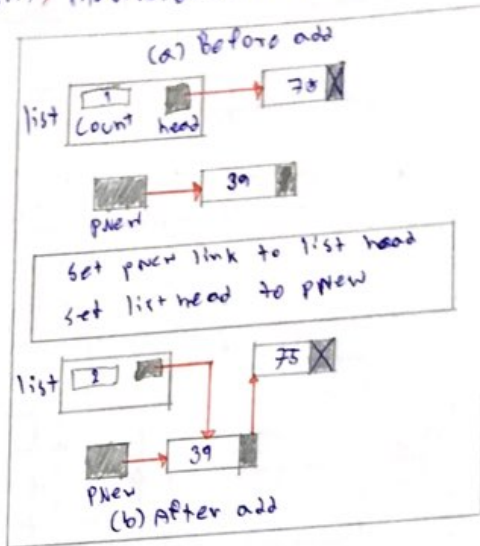 (a) Before add
1
75
list
Count head
39
pNew
Set pNew link to list head
set list head to pNew
75
list
2
39
PNew
(b) After add